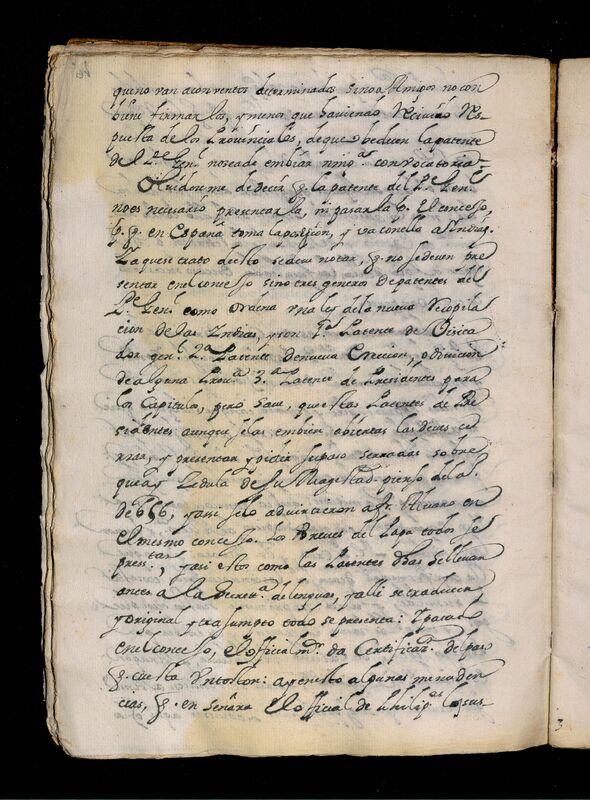 que no van a conventos determinados sino a Amigos no con
biene firmarlos, y menos que haviendo recivido res
puesta de los Provinciales, de que veciuen la patente
del P.e Gen.l no se a de embiar ning.a convocatoria.
Olvidou me de decir q. la patente del P.e Gen.l
no es necesario presentarla, ni pasarla p. el concejo,
p. q. en España toma la posesion, y va con ella a Indias.
Ya que se trato de esto se deve notar, q. no se deven pre
sentar en el concejo sino tres generos de patentes del
P.e Gen.l como ordena una ley de la nueva recopila
cion de las Indias, y son 1.a Patente de Visita
dor gen.l 2.a Patente de nueva Ereccion, o division
de alguna Prou.a 3.a Patente de Presidentes para
los Capitulos, pero save, que estas Patentes de Pre
sidentes aunque se las embien abiertas las deves ce
rrar, y presentar y pedir su paso serradas sobre
que ay Cedula de su Magestad pienso del a.
de 656, y asi se lo advirtieron a fr. Alvaro en
el mesmo concejo. Los Breves del Papa todos se
presentan, y asi estos como las Patentes dhas se llevan
antes a la secret.a de lenguas, y alli se traducen
y original y trasumpto todo se presenta: Y pasado
en el concejo, el official m.r da Certificac.n del paso
q. cuesta un toston: ay en esto algunas menuden
cias, q. enseñara el official de Philip.as